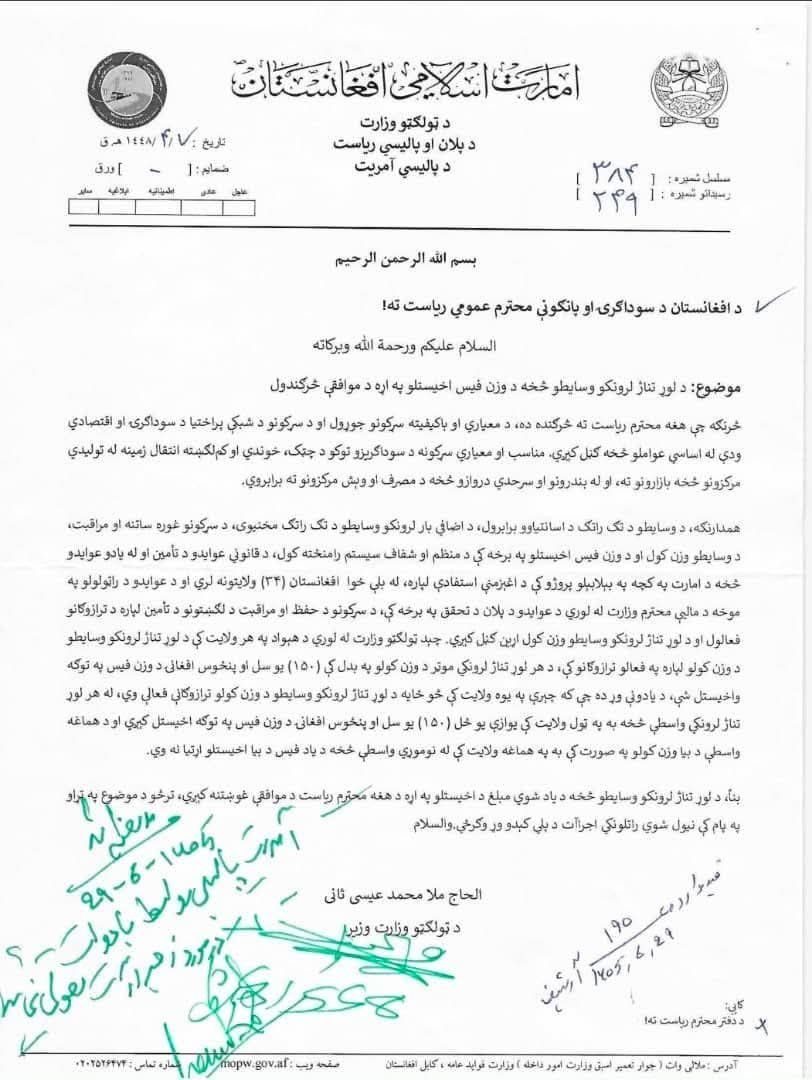 امارت اسلامی افغانستان
د ټولګټو وزارت
د پلان او پالیسي ریاست
د پالیسي آمریت
تاریخ : ۱۴۴۸/۴/۷ هـ ق
ضمایم : [ - ] ورق
عاجل عادی اطمینانیه ابلاغیه سایر
مسلسل شمېره : [ ۳۸۴ ]
رسیداتو شمېره : [ ۲۴۹ ]
بسم الله الرحمن الرحیم
د افغانستان د سوداګرۍ او پانګونې محترم عمومي ریاست ته!
السلام علیکم ورحمة الله وبرکاته
موضوع: د لوړ تناژ لرونکو وسایطو څخه د وزن فیس اخیستلو په اړه د موافقې څرګندول
څرنګه چې هغه محترم ریاست ته څرګنده ده، د معیاري او باکیفیته سرکونو جوړول او د سرکونو د شبکې پراختیا د سوداګرۍ او اقتصادي
ودې له اساسي عواملو څخه ګڼل کیږي. مناسب او معیاري سرکونه د سوداګریزو توکو د چټک، خوندي او کم‌لګښته انتقال زمینه له تولیدي
مرکزونو څخه بازارونو ته، او له بندرونو او سرحدي دروازو څخه د مصرف او وېش مرکزونو ته برابروي.
همدارنګه، د وسایطو د تګ راتګ د اسانتیاوو برابرول، د اضافي بار لرونکو وسایطو د تګ راتګ مخنیوی، د سرکونو غوره ساتنه او مراقبت،
د وسایطو وزن کول او د وزن فیس اخیستلو په برخه کې د منظم او شفاف سیستم رامنځته کول، د قانوني عوایدو د تأمین او له یادو عوایدو
څخه د امارت په کچه په بېلابېلو پروژو کې د اغېزمنې استفادې لپاره، له بلې خوا افغانستان (۳۴) ولایتونه لري او د عوایدو د راټولولو په
موخه د مالیې محترم وزارت له لوري د عوایدو د پلان د تحقق په برخه کې، د سرکونو د حفظ او مراقبت د لګښتونو د تأمین لپاره د ترازوګانو
فعالول او د لوړ تناژ لرونکو وسایطو وزن کول اړین ګڼل کیږي. چېد ټولګټو وزارت له لوري د هېواد په هر ولایت کې د لوړ تناژ لرونکو وسایطو
د وزن کولو لپاره په فعالو ترازوګانو کې، د هر لوړ تناژ لرونکي موټر د وزن کولو په بدل کې (۱۵۰) یو سل او پنځوس افغانۍ د وزن فیس په توګه
واخیستل شي، د یادونې وړ ده چې که چېرې په یوه ولایت کې څو ځایه د لوړ تناژ لرونکو وسایطو د وزن کولو ترازوګانې فعالې وي، له هر لوړ
تناژ لرونکي واسطې څخه به په ټول ولایت کې یوازې یو ځل (۱۵۰) یو سل او پنځوس افغانۍ د وزن فیس په توګه اخیستل کیږي او د هماغه
واسطې د بیا وزن کولو په صورت کې به په هماغه ولایت کې له نوموړي واسطې څخه د یاد فیس د بیا اخیستلو اړتیا نه وي.
بناً، د لوړ تناژ لرونکو وسایطو څخه د یاد شوي مبلغ د اخیستلو په اړه د هغه محترم ریاست د موافقې غوښتنه کیږي، ترڅو د موضوع په تړاو
په پام کې نیول شوي راتلونکي اجراآت د پلي کېدو وړ وګرځي.والسلام
الحاج ملا محمد عیسی ثانی
د ټولګټو وزارت وزیر
۲۹-۶-۱۴۰۵
۱۹۰
۱۴۰۵،۶،۲۹
آرشیف
کاپي:
د دفتر محترم ریاست ته!
آدرس : ملالی وات ( جوار تعمیر اسبق وزارت امور داخله ) وزارت فواید عامه ، کابل افغانستان
صفحه ویب : mopw.gov.af
شماره تماس : ۰۲۰۲۵۲۶۴۷۴